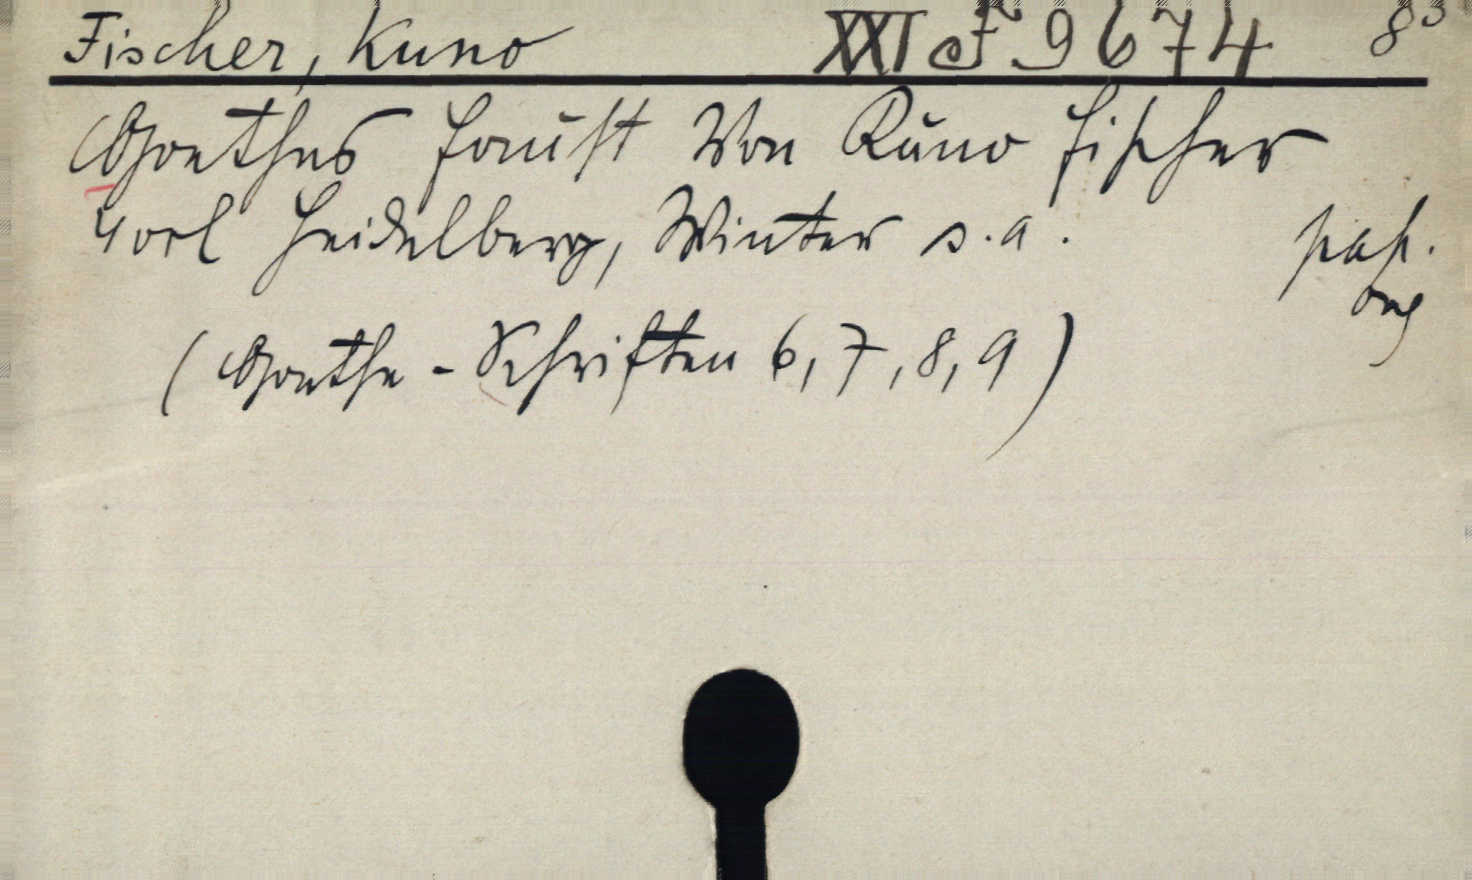 Fischer, Kuno XXI F 9674 8°
Goethes Faust Von Kuno Fischer
4 vol Heidelberg, Winter s. a.
(Goethe-Schriften 6, 7, 8, 9)